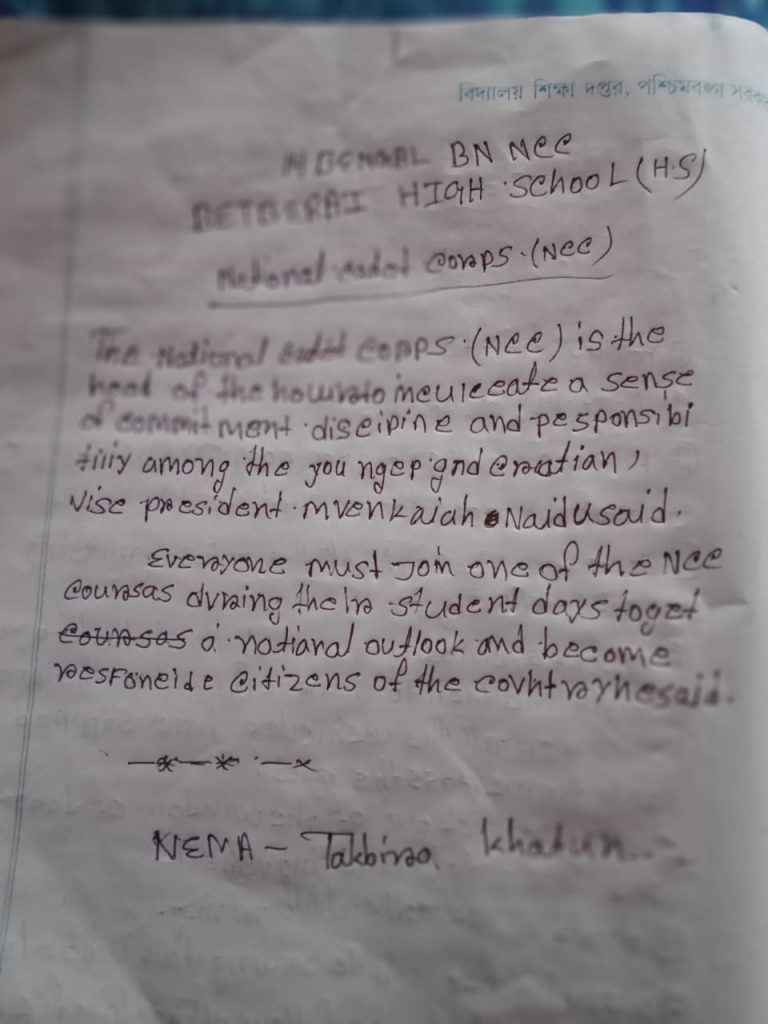 বিদ্যালয় শিক্ষা দপ্তর, পশ্চিমবঙ্গ সরকার
BENGAL BN NCC
BETBERAI HIGH SCHOOL (H.S)
National cadet corps. (NCC)
The National cadet corps. (NCC) is the
head of the inculccate a sense
of commitment discipine and pesponsibi
tiliy among the you ngep gnd cration,
vise president. mvenkaiah Naidusaid.
Everyone must Join one of the NCC
coursas during their student days toget
courses a notianal outlook and become
resFoneide citizens of the country hesaid.
NEMA - Takbira Khatun